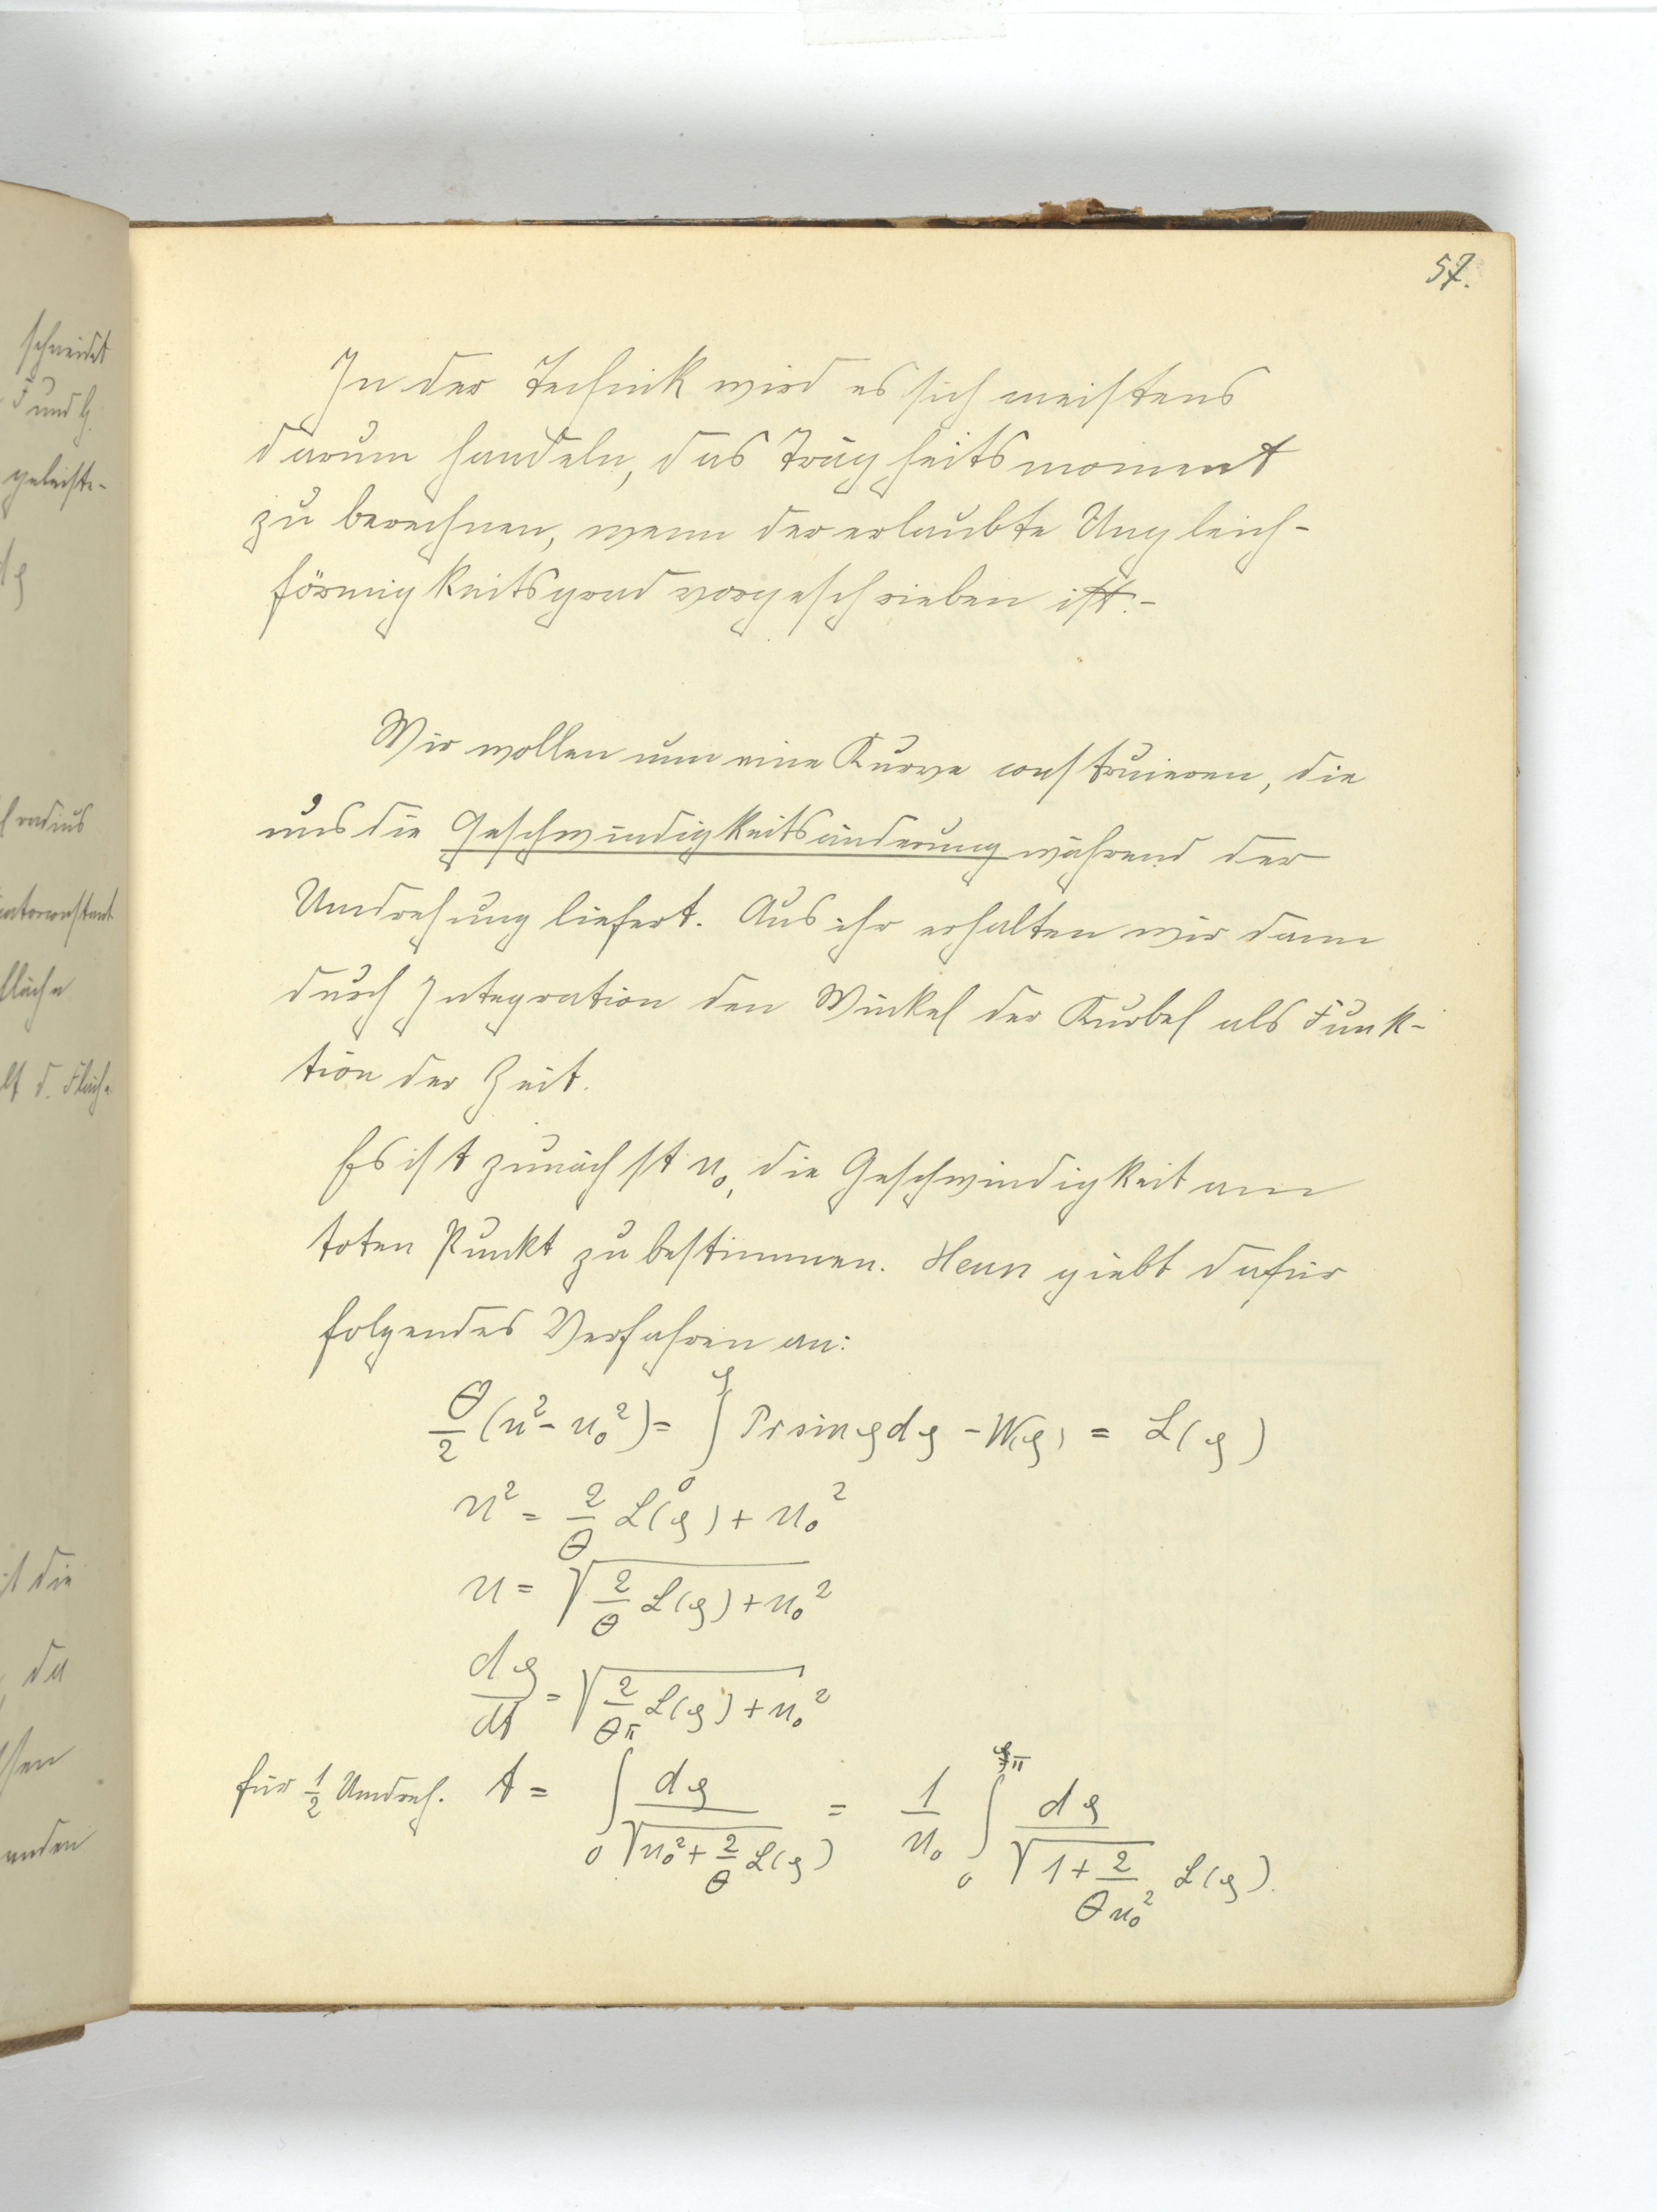 schneidet
F und G.
geleiste-
radius
constant
fläche
d. Fläche
it die
, da
57.
In der Technik wird es sich meistens
darum handeln, das Trägheitsmoment
zu berechnen, wenn der erlaubte Ungleich-
förmigkeitsgrad vorgeschrieben ist.-
Wir wollen nun eine Kurve construieren, die
uns die Geschwindigkeitsänderung während der
Umdrehung liefert. Aus ihr erhalten wir dann
durch Integration den Winkel der Kurbel als Funk-
tion der Zeit.
Es ist zunächst u₀, die Geschwindigkeit am
toten Punkt zu bestimmen. Heun giebt dafür
folgendes Verfahren an:
θ/2 (u² - u₀²) = ∫₀^φ Pr sin φ dφ - W(φ) = L(φ)
u² = 2/θ L(φ) + u₀²
u = √(2/θ L(φ) + u₀²)
dφ/dt = √(2/θ L(φ) + u₀²)
für 1/2 Umdreh. t = ∫₀^π dφ/√(u₀² + 2/θ L(φ)) = 1/u₀ ∫₀^π dφ/√(1 + 2/(θu₀²) L(φ)).